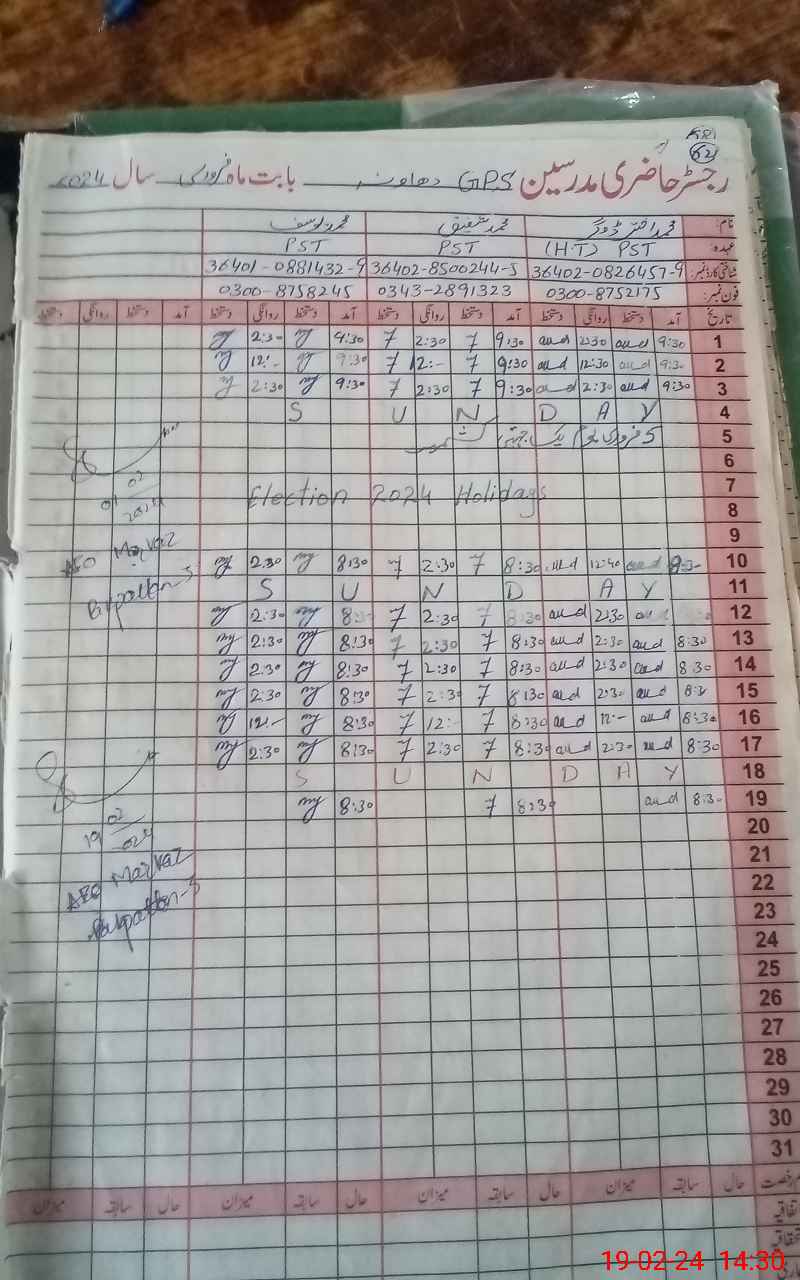 62
رجسٹر حاضری مدرسین GPS بابت ماہ فروری سال 2024
نام: محمد اختر ڈوگر محمد شفیق محمد یوسف
عہدہ: PST (H.T) PST PST
شناختی کارڈ نمبر: 36402-0826457-9 36402-8500244-5 36401-0881432-9
فون نمبر: 0300-8752175 0343-2891323 0300-8758245
تاریخ آمد دستخط روانگی دستخط آمد دستخط روانگی دستخط آمد دستخط روانگی دستخط آمد دستخط روانگی دستخط
1 9:30 2:30 9:30 2:30 9:30 2:30
2 9:30 12:30 9:30 12:- 9:30 12:-
3 9:30 2:30 9:30 2:30 9:30 2:30
4 S U N D A Y
5 5 فروری یوم یکجہتی کشمیر
6
7 Election 2024 Holidays
8
9
10 8:3- 12:40 8:30 2:30 8:30 2:30
11 S U N D A Y
12 2:30 8:30 2:30 8:30 2:30
13 8:30 2:30 8:30 2:30 8:30 2:30
14 8:30 2:30 8:30 2:30 8:30 2:30
15 2:30 8:30 2:30 8:30 2:30
16 8:30 12:- 8:30 12:- 8:30 12:-
17 8:30 2:30 8:30 2:30 8:30 2:30
18 S U N D A Y
19 8:30 8:30 8:30
20
21
22
23
24
25
26
27
28
29
30
31
02
2024
AEO Markaz
19 02
2024
AEO Markaz
Pakpattan-5
حال سابقہ میزان حال سابقہ میزان حال سابقہ میزان حال سابقہ میزان
19-02-24 14:30